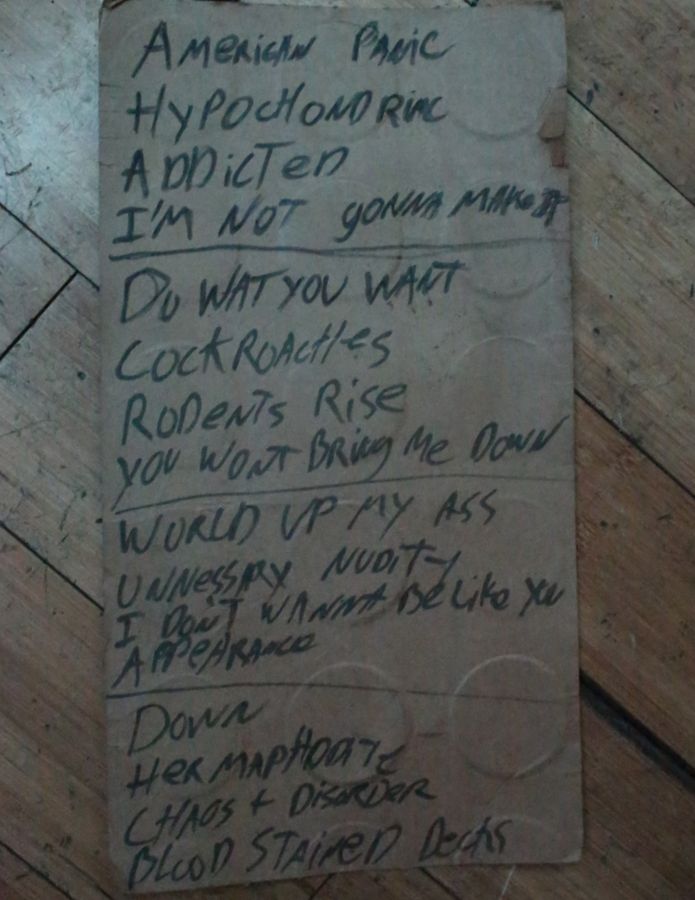 AMERICAN PANIC
HYPOCHONDRIAC
ADDICTED
I'M NOT GONNA MAKE IT
DO WAT YOU WANT
COCKROACHES
RODENTS RISE
YOU WONT BRING ME DOWN
WORLD UP MY ASS
UNNESSARY NUDITY
I DON'T WANNA BE LIKE YOU
APPEARANCE
DOWN
HERMAPHODITE
CHAOS + DISORDER
BLOOD STAINED DECKS